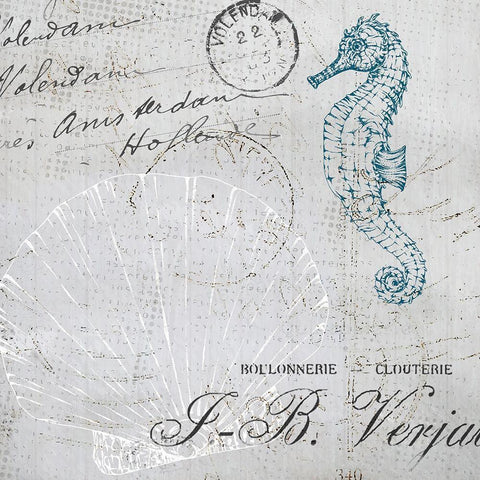 Volendam
Volendam
Amsterdam
Hollande
VOLENDAM
22
BOULONNERIE — CLOUTERIE
J-B. Verja
340